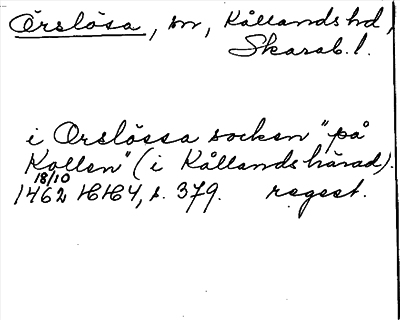 Örslösa, sn, Kållands hd,
Skarab. l.
i Orslössa socken "på
Kollen" (i Kållands härad).
18/10
1462 HH4, s. 379. regest.